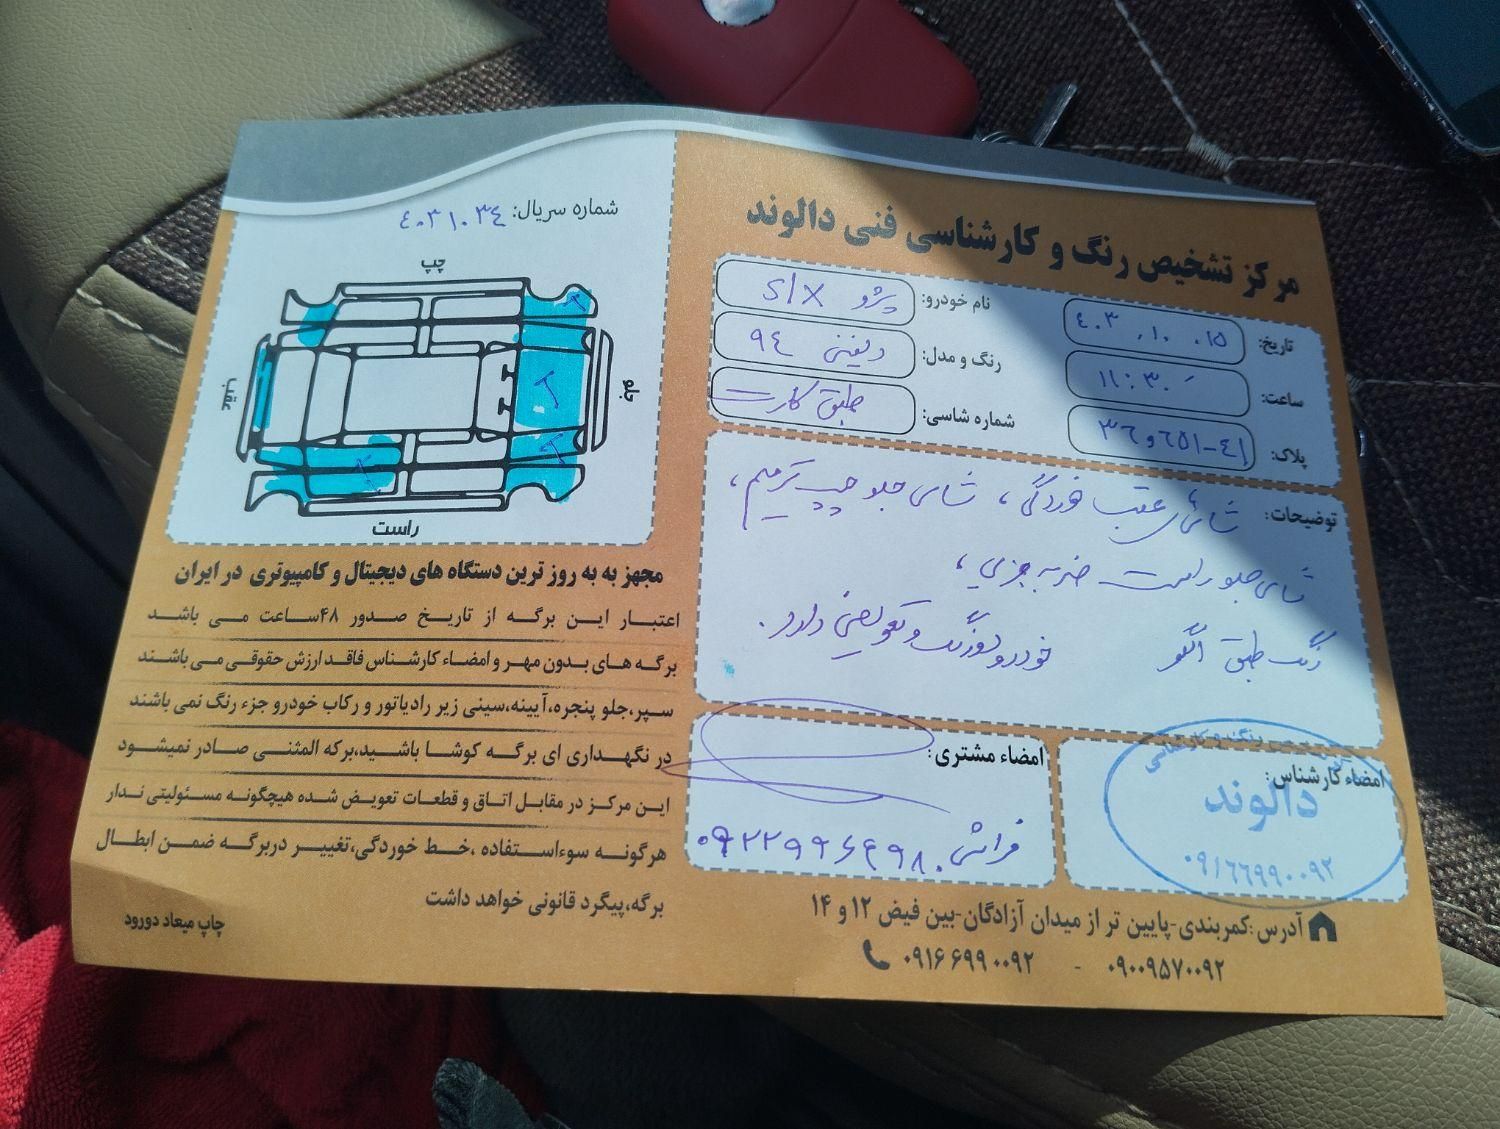 مرکز تشخیص رنگ و کارشناسی فنی دالوند
تاریخ: ٤٠٣.١٠.١٥
ساعت: ١١:٣٠
پلاک: ٣٦و٦٥١-٤١
نام خودرو: پژو SLX
رنگ و مدل: ٩٤
شماره شاسی: طبق کارت
توضیحات: شاسی عقب خوردگی، شاسی جلو چپ ترمیم،
شاسی جلو راست ضربه جزیی،
رنگ طبق الگو خودرو دوررنگ و تعویضی دارد.
امضاء کارشناس:
دالوند
٠٩١٦٦٩٩٠٠٩٢
امضاء مشتری:
٠٩٢٢٩٩٦٤٩٨٠
آدرس:کمربندی-پایین تر از میدان آزادگان-بین فیض ۱۲ و ۱۴
۰۹۰۰۹۵۷۰۰۹۲ - ۰۹۱۶۶۹۹۰۰۹۲
شماره سریال: ٤٠٣١٠٣٤
چپ
جلو
عقب
راست
مجهز به به روز ترین دستگاه های دیجیتال و کامپیوتری در ایران
اعتبار این برگه از تاریخ صدور ۴۸ساعت می باشد
برگه های بدون مهر و امضاء کارشناس فاقد ارزش حقوقی می باشند
سپر،جلو پنجره،آیینه،سینی زیر رادیاتور و رکاب خودرو جزء رنگ نمی باشند
در نگهداری ای برگه کوشا باشید،برکه المثنی صادر نمیشود
این مرکز در مقابل اتاق و قطعات تعویض شده هیچگونه مسئولیتی ندارد
هرگونه سوءاستفاده ،خط خوردگی،تغییر دربرگه ضمن ابطال
برگه،پیگرد قانونی خواهد داشت
چاپ میعاد دورود